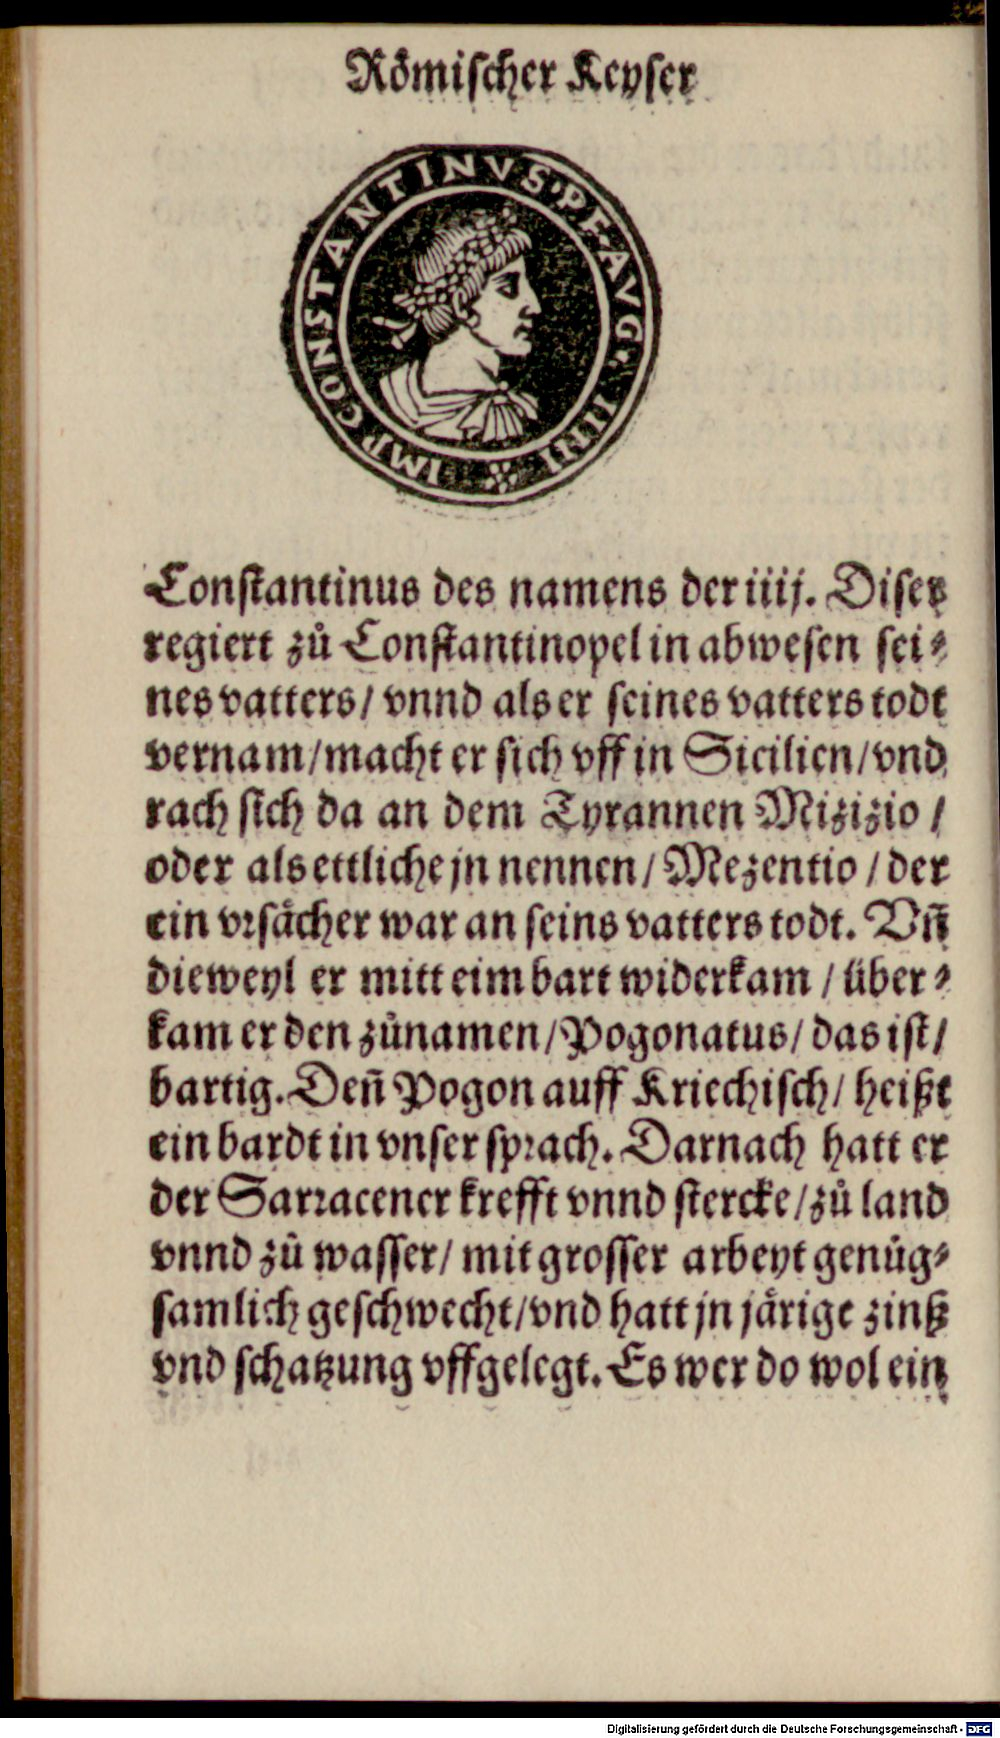 Römischer Keyser
IMP CONSTANTINVS·P·F·AVG·IIIII
Constantinus des namens der iiij. Diser
regiert zů Constantinopel in abwesen sei⸗
nes vatters/ vnnd als er seines vatters todt
vernam/macht er sich vff in Sicilien/vnd
rach sich da an dem Tyrannen Mizizio /
oder als ettliche jn nennen/ Mezentio / der
ein vrsächer war an seins vatters todt. Vñ
dieweyl er mitt eim bart widerkam / über⸗
kam er den zůnamen/Pogonatus/ das ist/
bartig. Deñ Pogon auff Kriechisch/ heißt
ein bardt in vnser sprach. Darnach hatt er
der Sarracener krefft vnnd stercke/zů land
vnnd zů wasser/ mit grosser arbeyt genůg⸗
samlich geschwecht/vnd hatt jn järige zinß
vnd schatzung vffgelegt. Es wer do wol ein
Digitalisierung gefördert durch die Deutsche Forschungsgemeinschaft - DFG